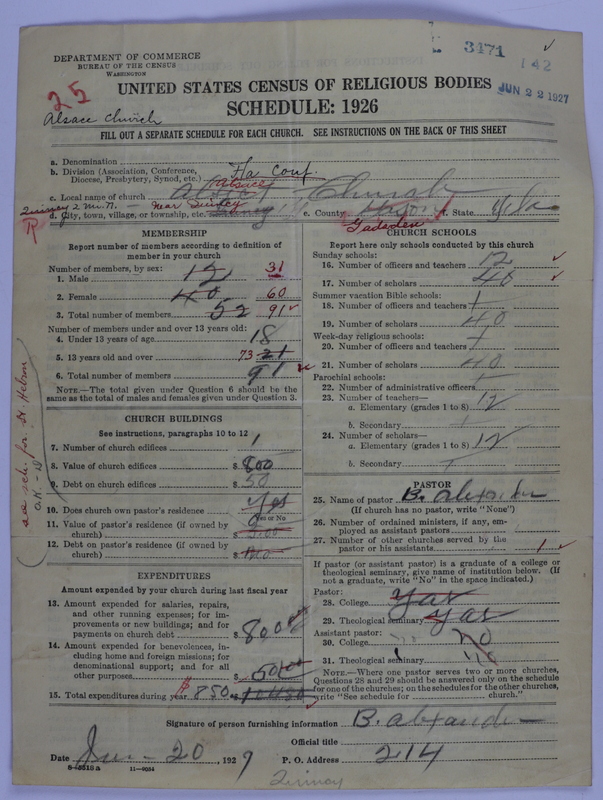 E 3471
142
JUN 22 1927
DEPARTMENT OF COMMERCE
BUREAU OF THE CENSUS
WASHINGTON
25
Alsace Church
UNITED STATES CENSUS OF RELIGIOUS BODIES
SCHEDULE: 1926
FILL OUT A SEPARATE SCHEDULE FOR EACH CHURCH. SEE INSTRUCTIONS ON THE BACK OF THIS SHEET
a. Denomination
b. Division (Association, Conference, Diocese, Presbytery, Synod, etc.) Fla Conf.
c. Local name of church Alsace Church
Quincy 2 M. N. near Quincy
d. City, town, village, or township, etc. e. County Gadsden f. State
R
MEMBERSHIP
Report number of members according to definition of
member in your church
Number of members, by sex:
1. Male 12 31
2. Female 40 60
3. Total number of members 52 91
Number of members under and over 13 years old:
4. Under 13 years of age 18
5. 13 years old and over 73 21
6. Total number of members 91
NOTE.—The total given under Question 6 should be the
same as the total of males and females given under Question 3.
CHURCH BUILDINGS
See instructions, paragraphs 10 to 12
7. Number of church edifices 1
8. Value of church edifices $ 800
9. Debt on church edifices $ 50
10. Does church own pastor's residence Yes
Yes or No
11. Value of pastor's residence (if owned by
church) $
12. Debt on pastor's residence (if owned by
church) $
EXPENDITURES
Amount expended by your church during last fiscal year
13. Amount expended for salaries, repairs,
and other running expenses; for im-
provements or new buildings; and for
payments on church debt $ 800
14. Amount expended for benevolences, in-
cluding home and foreign missions; for
denominational support; and for all
other purposes $ 50
15. Total expenditures during year $ 850
CHURCH SCHOOLS
Report here only schools conducted by this church
Sunday schools:
16. Number of officers and teachers 12
17. Number of scholars 40
Summer vacation Bible schools:
18. Number of officers and teachers 1
19. Number of scholars 40
Week-day religious schools:
20. Number of officers and teachers
21. Number of scholars 40
Parochial schools:
22. Number of administrative officers
23. Number of teachers—
a. Elementary (grades 1 to 8) 12
b. Secondary
24. Number of scholars—
a. Elementary (grades 1 to 8) 12
b. Secondary
PASTOR
25. Name of pastor B. Alexander
(If church has no pastor, write "None")
26. Number of ordained ministers, if any, em-
ployed as assistant pastors
27. Number of other churches served by the
pastor or his assistants 1
If pastor (or assistant pastor) is a graduate of a college or
theological seminary, give name of institution below. (If
not a graduate, write "No" in the space indicated.)
Pastor:
28. College Yas
29. Theological seminary Yas
Assistant pastor:
30. College No
31. Theological seminary No
NOTE.—Where one pastor serves two or more churches,
Questions 28 and 29 should be answered only on the schedule
for one of the churches; on the schedules for the other churches,
write "See schedule for church."
see sch. for St Hebron
O.K. -
Signature of person furnishing information B. Alexander
Official title
Date Jun - 20, 1927 P. O. Address 214
8—5310 a 11—9034
Quincy